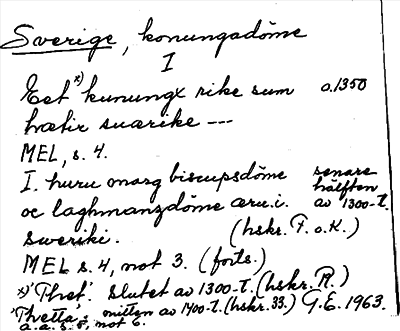 Sverige, konungadöme
I
Eet x) kunungx rike sum o.1350
hætir suærike ---
MEL, s. 4.
I. huru marg biscupsdöme senare hälften
oc laghmanzdöme æru.i. av 1300-t.
sweriki. (hskr. F. o. K.)
MEL s. 4, not 3. (forts.)
x) 'Thet'. slutet av 1300-t. (hskr. R.)
'Thetta', mitten av 1400-t. (hskr. 33.) G.E. 1963.
a.a. s. 5. not 6.